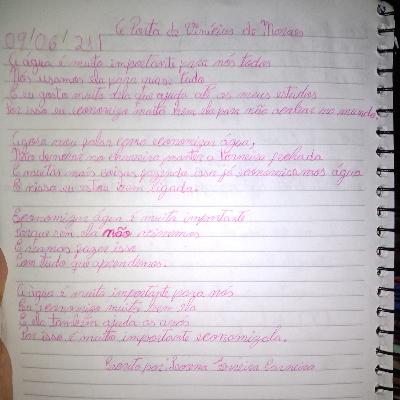 A Porta de Vinícius de Moraes
09/06/211
A água é muito importante para nós todos
Nós usamos ela para quase tudo
E eu gosto muito dela que ajuda até os meus estudos
Por isso eu economizo muito bem ela para não acabar no mundo.
Agora vou falar como economizar água,
Não demorar no chuveiro manter a torneira fechada
E muitas mais coisas fazendo isso já economiza mos água
E nisso eu estou bem ligada.
Economizar água é muito importante
Porque sem ela não vivemos
E vamos fazer isso
Com tudo que aprendemos.
A água é muito importante para nós
Eu economizo muito bem ela
E ela também ajuda os avós
Por isso é muito importante economizala.
Escrito por: Lorena Ferreira Carneiro